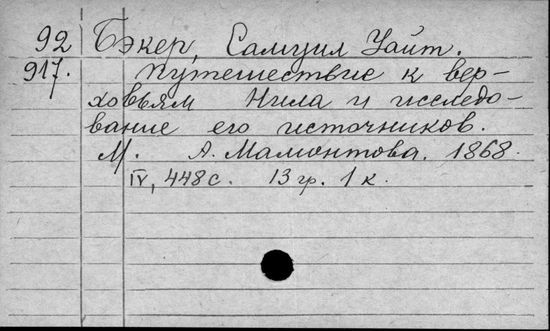 92 Бэкер, Самуил Уайт.
917. Путешествие к вер-
ховьям Нила и исследо-
вание его источников.
М. А. Мамонтова. 1868.
IV, 448 с. 13 гр. 1 к.